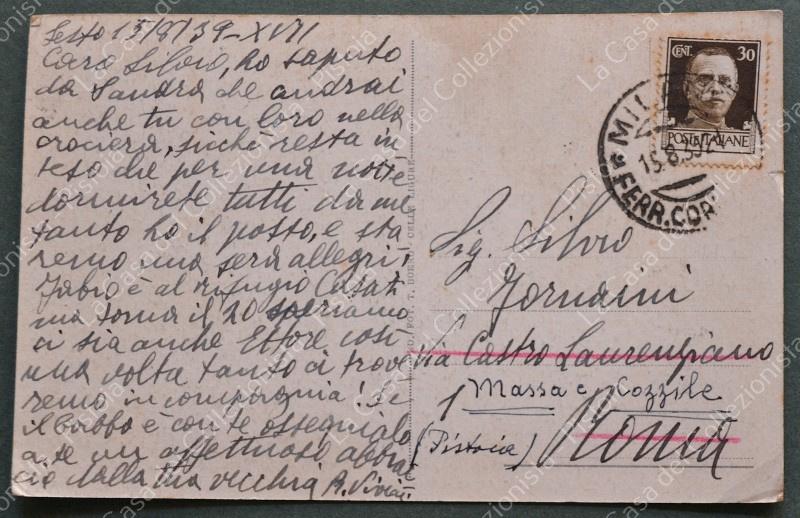 Sesto 13/8/39-XVII
Caro Silvio, ho saputo
da Sandra che andrai
anche tu con loro nella
crociera, sicchè resta in
teso che per una notte
dormirete tutti da me
tanto ho il posto, e sta
remo una sera allegri,
Fabio è al rifugio Casati
ma torna il 20 speriamo
ci sia anche Ettore così
una volta tanto ci trove
remo in compagnia! Se
il babbo è con te ossequialo
a te un affettuoso abbrac
cio dalla tua vecchia B. Viviani
FOT. T. BOERO - CELLE LIGURE
CENT. 30
POSTE ITALIANE
15.8.39
FERR. COR
Sig. Silvio
Fornaini
Via Castro Laurenziano
1 Massa e Cozzile
(Pistoia) Roma
La Casa del Collezionista Pistoia